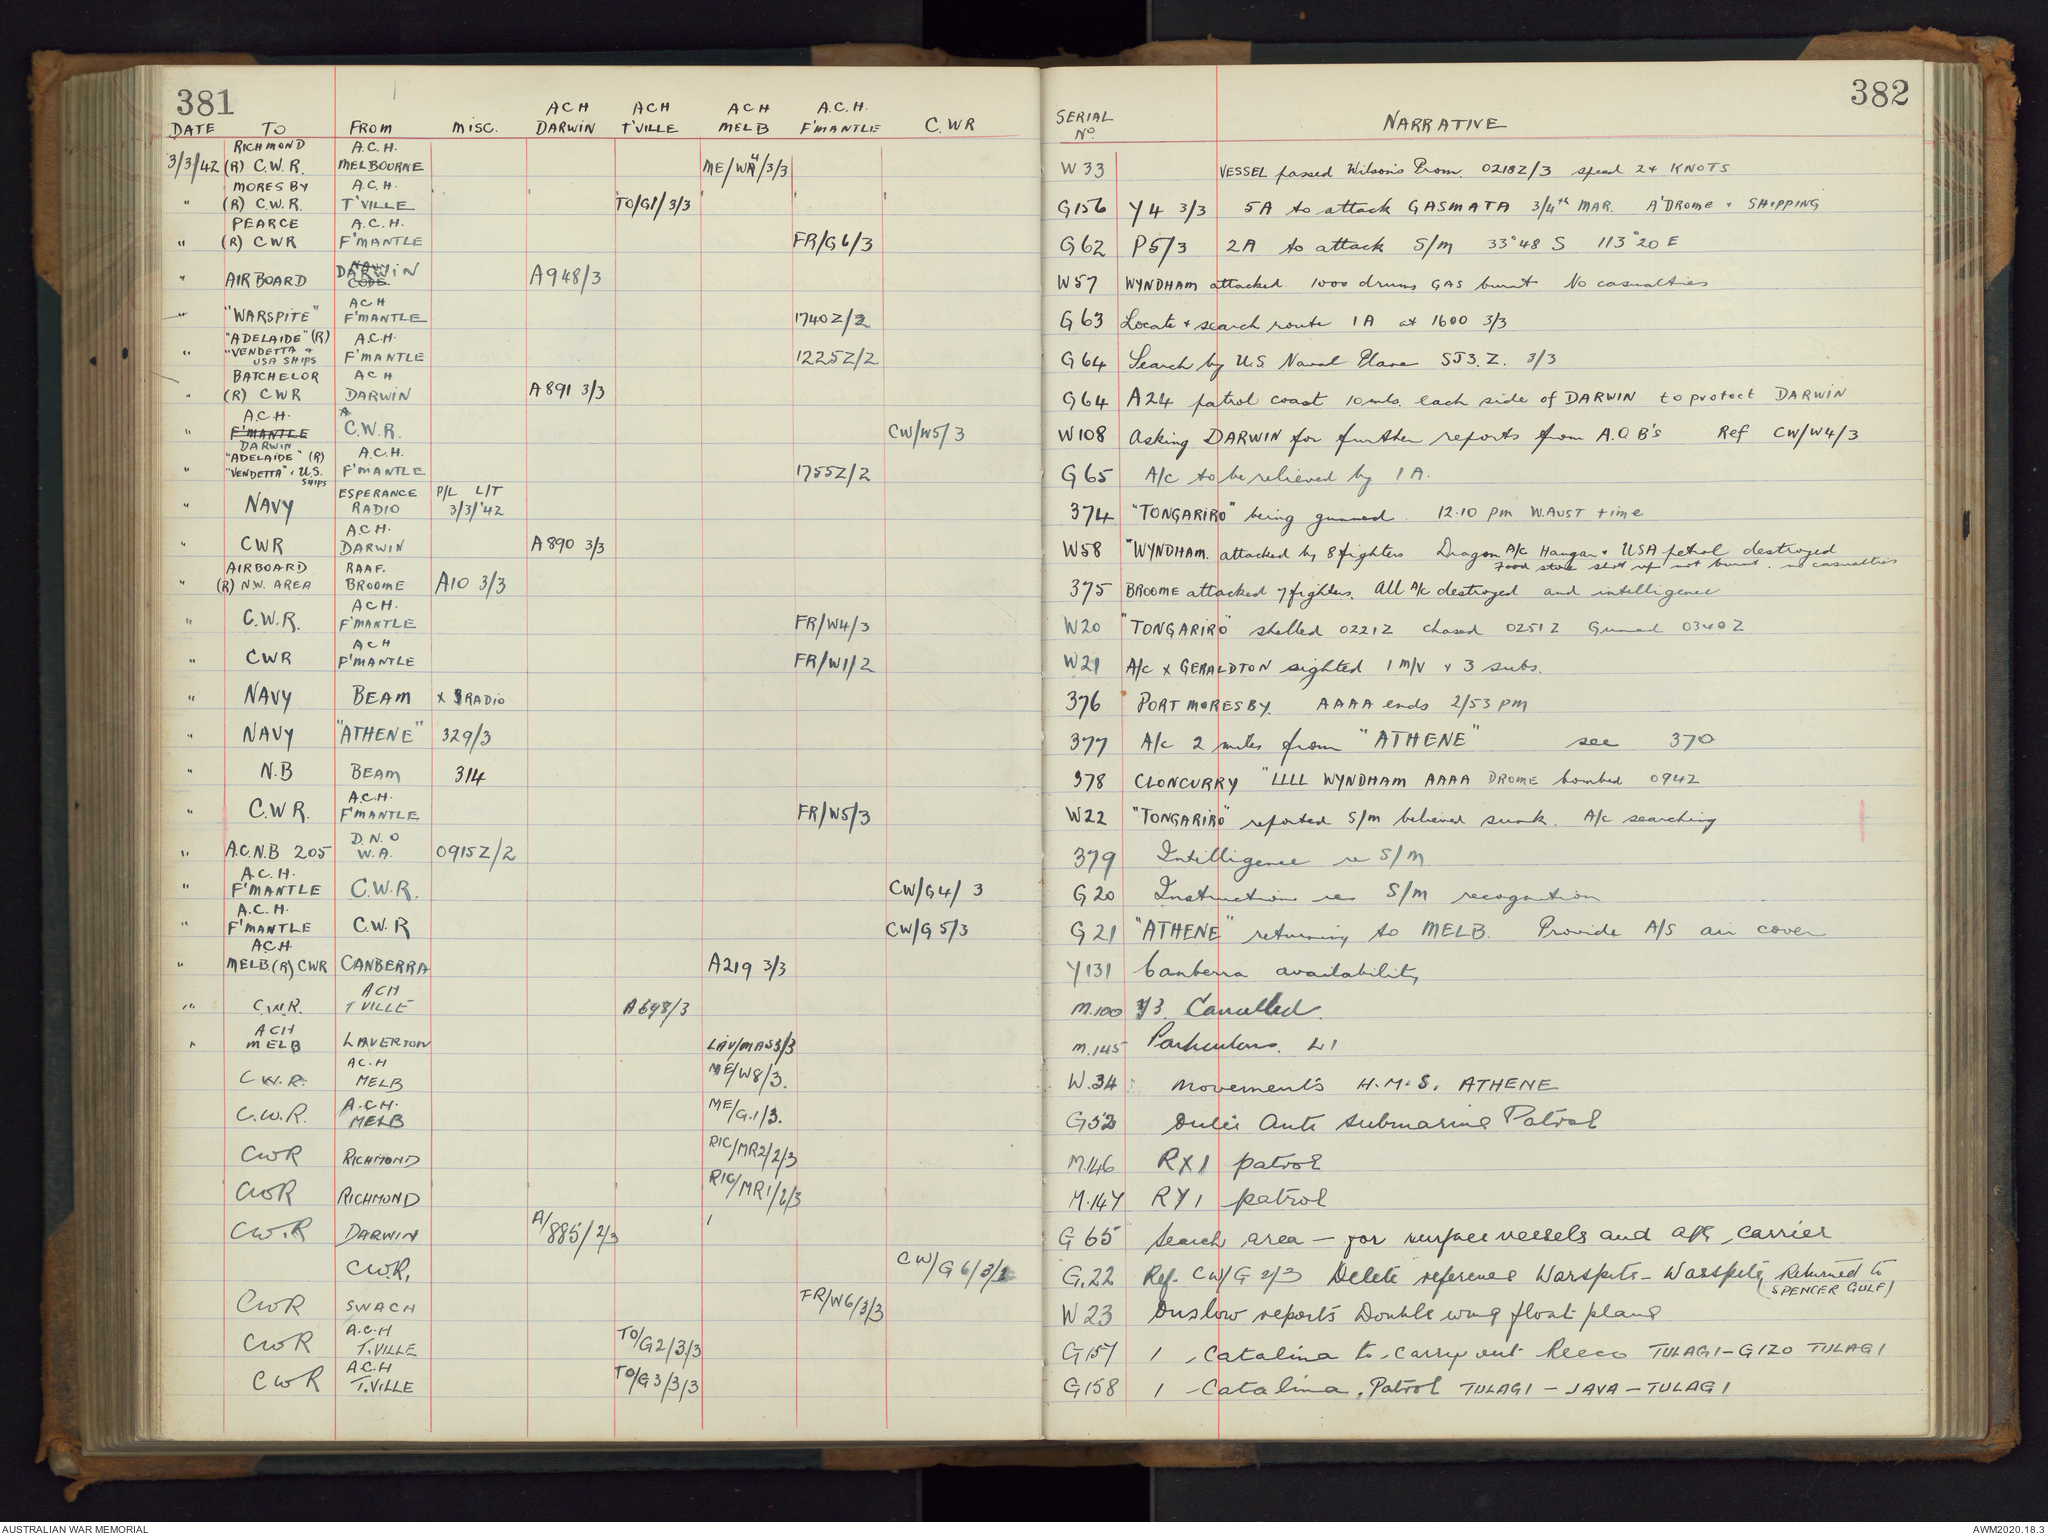 381
382
ACH ACH ACH A.C.H.
DATE TO FROM MISC. DARWIN T'VILLE MELB F'MANTLE C.WR SERIAL No. NARRATIVE
RICHMOND A.C.H.
3/3/42 (R) C.W.R. MELBOURNE ME/W4/3/3 W33 VESSEL passed Wilson's Prom. 0218Z/3 speed 24 KNOTS
MORESBY A.C.H.
" (R) C.W.R. T'VILLE TO/G1/3/3 G156 Y4 3/3 5A to attack GASMATA 3/4th MAR. A'DROME + SHIPPING
PEARCE A.C.H.
" (R) CWR F'MANTLE FR/G6/3 G62 P5/3 2A to attack S/M 33°48 S 113°20 E
" AIRBOARD DARWIN A948/3 W57 WYNDHAM attacked 1000 drums GAS burnt No casualties
ACH
" "WARSPITE" F'MANTLE 1740Z/2 G63 Locate + search route 1A at 1600 3/3
"ADELAIDE" (R) A.C.H.
" "VENDETTA + USA SHIPS F'MANTLE 1225Z/2 G64 Search by U.S Naval Plane SJ3.Z. 3/3
BATCHELOR ACH
" (R) CWR DARWIN A891 3/3 G64 A24 patrol coast 10mls. each side of DARWIN to protect DARWIN
A.C.H. A
" F'MANTLE DARWIN C.W.R. CW/W5/3 W108 Asking DARWIN for further reports from A.O.B's Ref CW/W4/3
"ADELAIDE" (R) A.C.H.
" "VENDETTA" + U.S. SHIPS F'MANTLE 1755Z/2 G65 A/c to be relieved by 1A.
" NAVY ESPERANCE RADIO P/L L/T 3/3/'42 374 "TONGARIRO" being gunned. 12.10 pm W.AUST time
A.C.H.
" CWR DARWIN A890 3/3 W58 "WYNDHAM. attacked by 8 fighters Dragon A/c Hangar + USA petrol destroyed
Food store shot up not burnt. no casualties
AIRBOARD RAAF.
" (R) N.W. AREA BROOME A10 3/3 375 BROOME attacked 7 fighters. All A/c destroyed and intelligence
ACH.
" C.W.R. F'MANTLE FR/W4/3 W20 "TONGARIRO" shelled 0221Z chased 0251Z Gunned 0340Z
ACH
" CWR F'MANTLE FR/W1/2 W21 A/c x GERALDTON sighted 1 m/v + 3 subs.
" NAVY BEAM x RADIO 376 PORT MORESBY. AAAA ends 2/53 pm
" NAVY "ATHENE" 329/3 377 A/c 2 miles from "ATHENE" see 370
" N.B BEAM 314 378 CLONCURRY "LLLL WYNDHAM AAAA DROME bombed 094Z
A.C.H.
" C.W.R. F'MANTLE FR/W5/3 W22 "TONGARIRO" reported S/M believed sunk. A/c searching
D.N.O
" A.C.N.B 205 W.A. 0915Z/2 379 Intelligence re S/M
A.C.H.
" F'MANTLE C.W.R. CW/G4/ 3 G20 Instructions re S/M recognition
A.C.H.
" F'MANTLE C.W.R CW/G5/3 G21 "ATHENE" returning to MELB. Provide A/S air cover
ACH.
" MELB (R) CWR CANBERRA A219 3/3 Y131 Canberra availability
ACH
" C.W.R. T VILLE A698/3 M.100 Y3. Cancelled.
ACH
" MELB LAVERTON LAV/MAS3/3 M.145 Particulars. L1
AC.H
C.W.R. MELB ME/W8/3. W.34 Movements H.M.S. ATHENE
A.C.H.
C.W.R. MELB ME/G.1/3. G52 Anti submarine Patrol
CWR RICHMOND RIC/MR2/2/3 M.146 RX1 patrol
CWR RICHMOND RIC/MR1/2/3 M.147 RY1 patrol
CW.R DARWIN A/885/2/3 G65 Search area — for surface vessels and a/c carrier
CW.R. CW/G6/3/ G.22 Ref. CW/G 2/3 Delete reference Warspite - Warspite (Returned to SPENCER GULF)
CWR SWACH FR/W6/3/3 W23 Onslow reports Double wing float plane
A.C.H
CWR T.VILLE TO/G2/3/3 G157 1 Catalina to carry out Recco TULAGI-GIZO TULAGI
A.C.H
CWR T.VILLE TO/G3/3/3 G158 1 Catalina. Patrol TULAGI - JAVA - TULAGI
AUSTRALIAN WAR MEMORIAL AWM2020.18.3